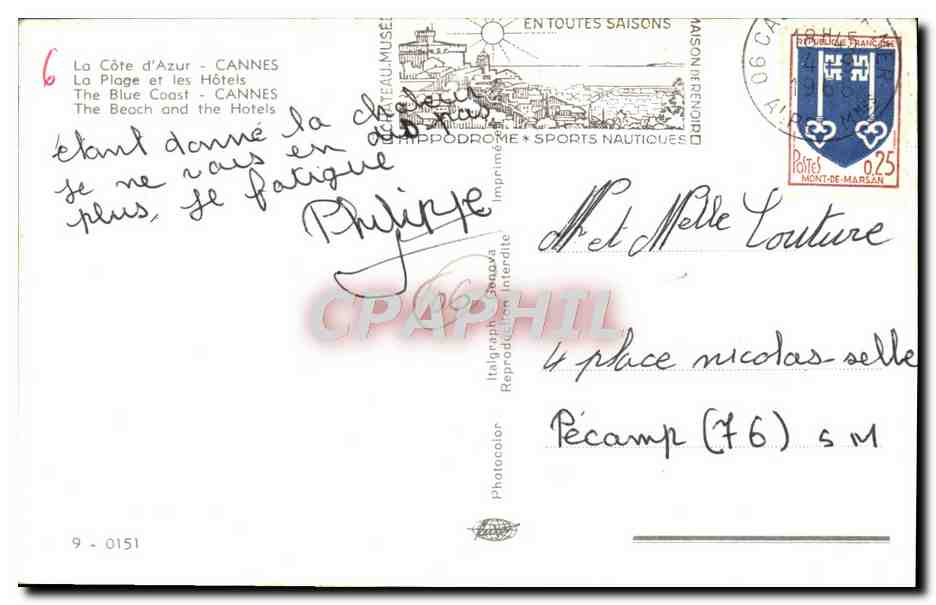 6
La Côte d'Azur - CANNES
La Plage et les Hôtels
The Blue Coast - CANNES
The Beach and the Hotels
étant donné la chaleur
je ne vais en dire pas
plus, je fatigue
Philippe
EN TOUTES SAISONS
CHATEAU-MUSÉE
MAISON DE RENOIR
HIPPODROME * SPORTS NAUTIQUES
06 CA
18H45
4
196
REPUBLIQUE FRANÇAISE
POSTES
0,25
MONT-DE-MARSAN
Mr et Melle Couture
4 place nicolas-selle
Pécamp (76) S M
Photocolor
Italgraph - Genova
Reproduction interdite
Imprimé
06
CPAPHIL
9 - 0151